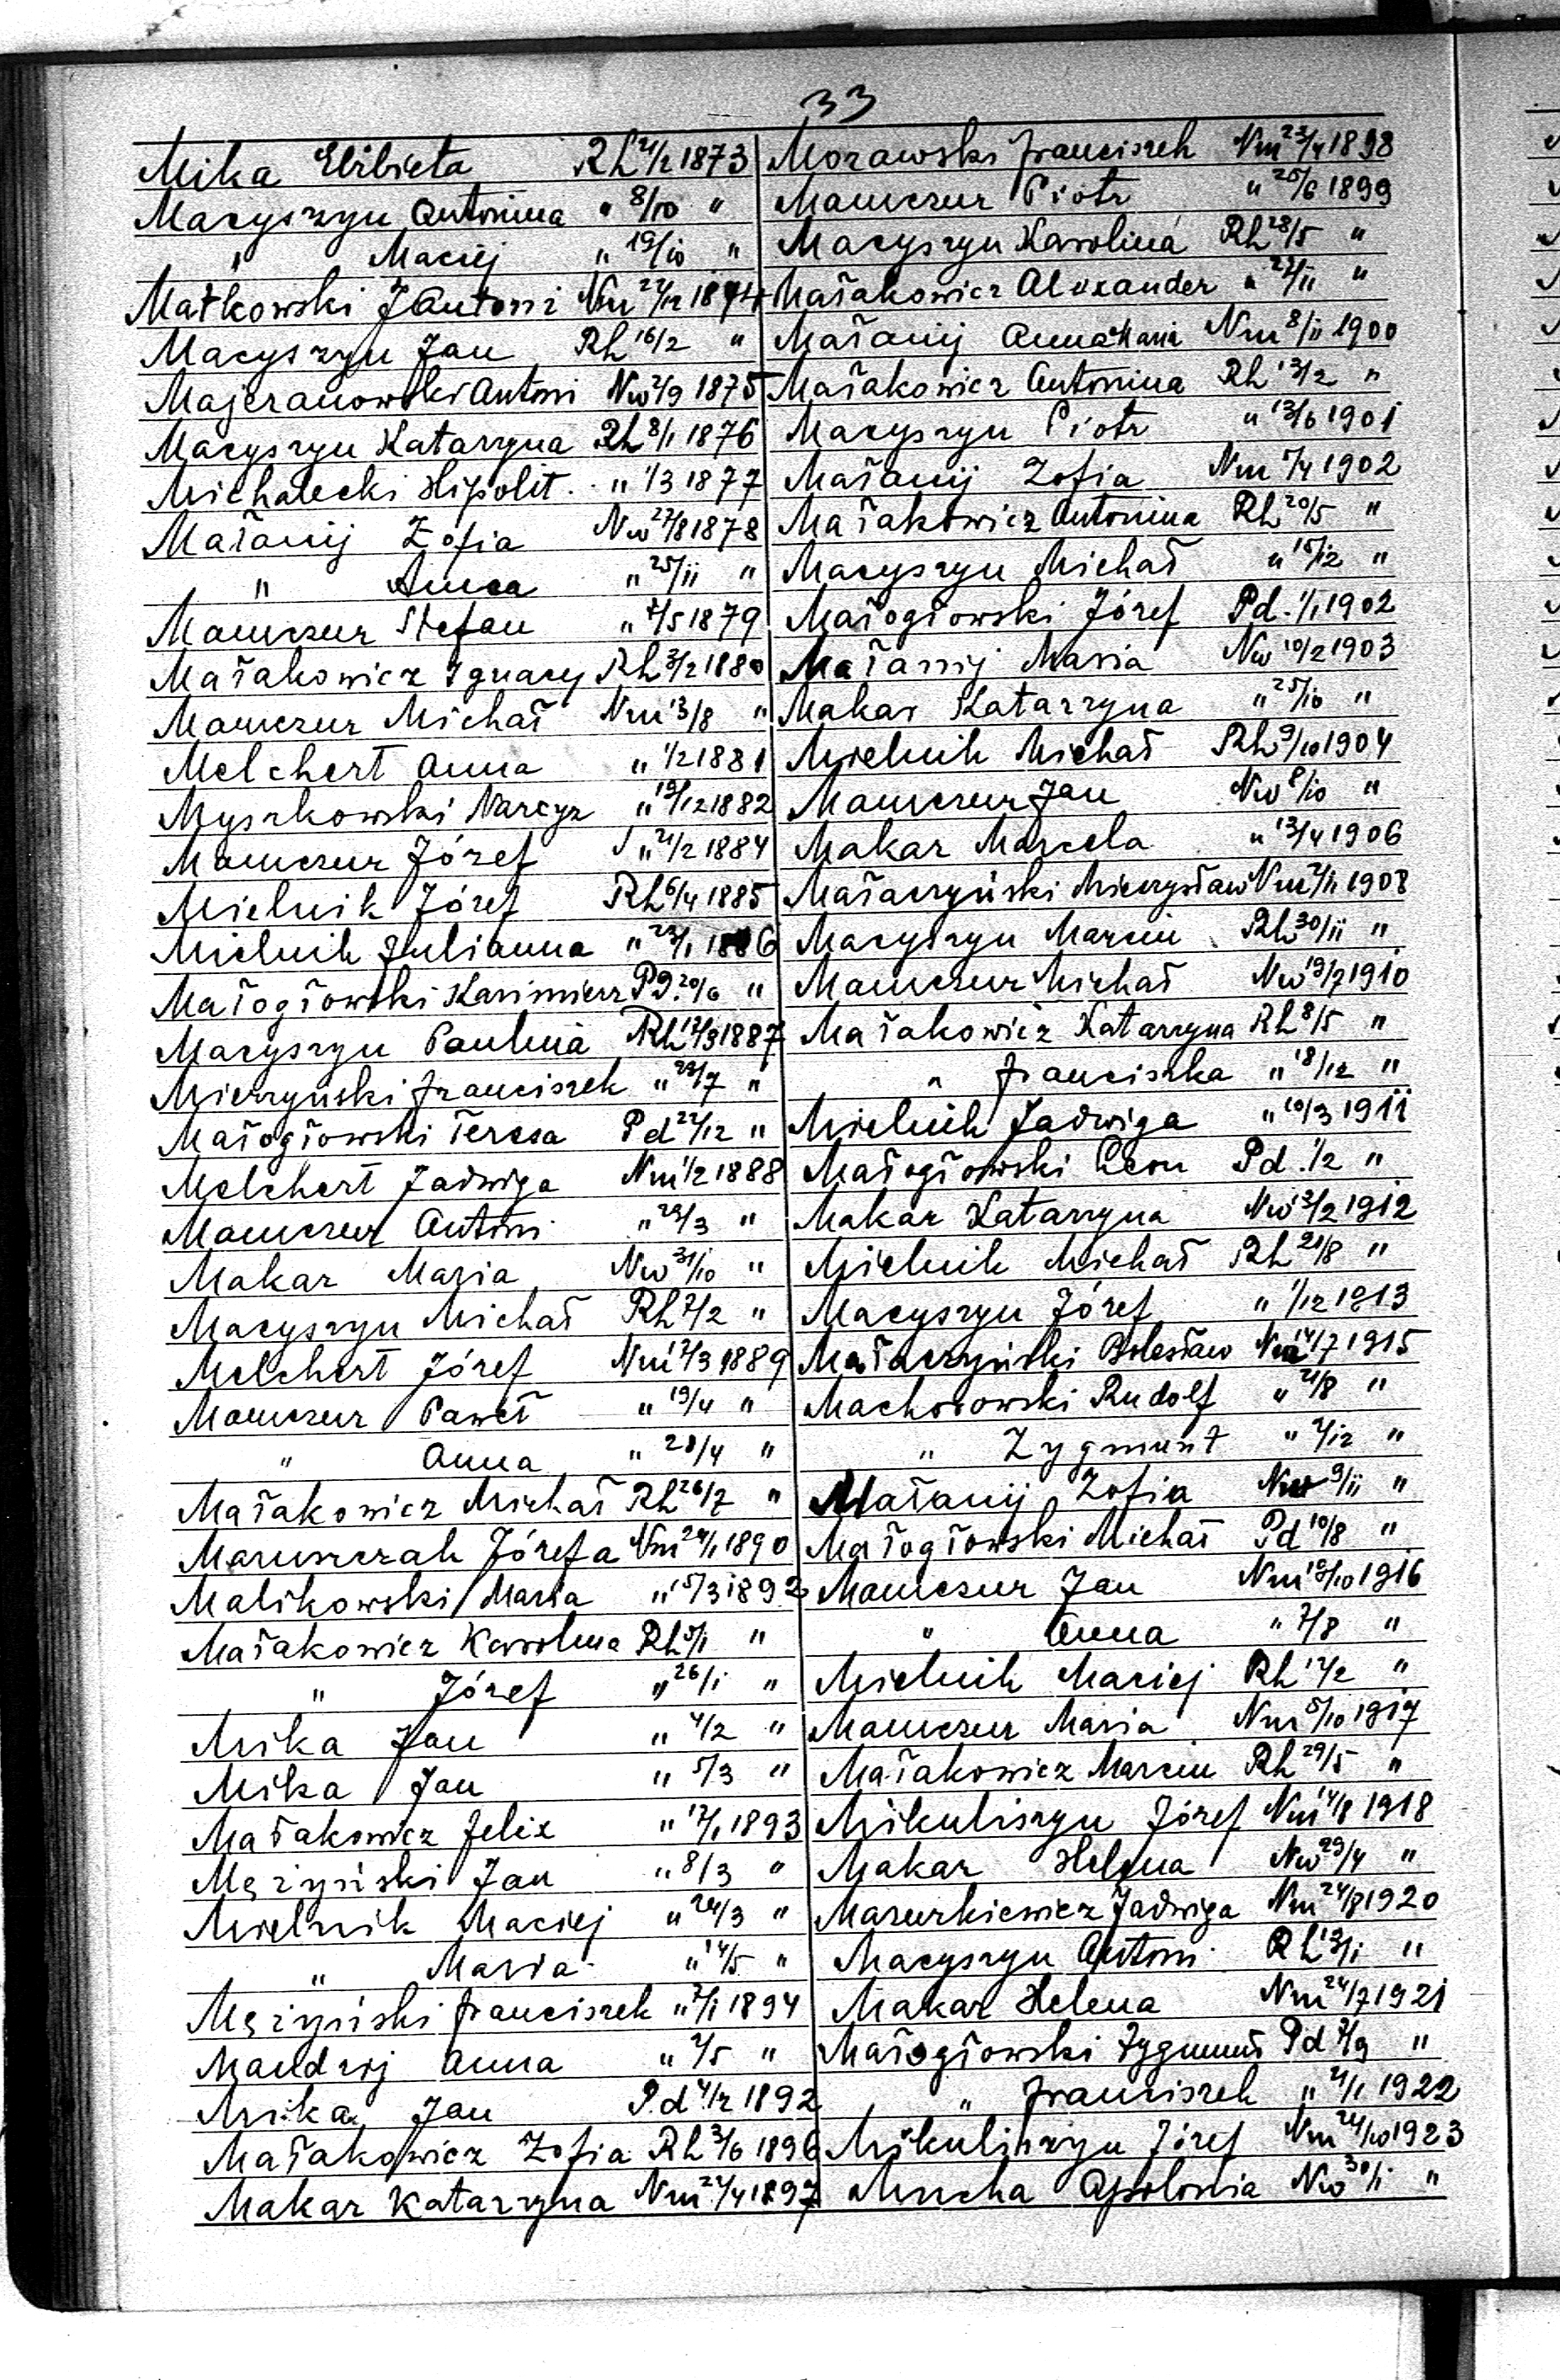 33
Mika Elżbieta Rh 21/2 1873
Macyszyn Antonina " 8/10 "
" Maciej " 19/10 "
Małkowski J Antoni Nm 22/12 1874
Macyszyn Jan Rh 16/2 "
Majeranowski Antoni Nw 2/9 1875
Macyszyn Katarzyna Rh 8/1 1876
Michałecki Hipolit " 1/3 1877
Małanij Zofia Nw 27/8 1878
" Anna " 25/11 "
Mamczur Stefan " 2/5 1879
Małakowicz Ignacy Rh 3/2 1880
Mamczur Michał Nm 13/8 "
Melchert Anna " 1/2 1881
Myszkowski Narcyz " 19/12 1882
Mamczur Józef " 21/2 1884
Mielnik Józef Rh 6/4 1885
Mielnik Julianna " 23/1 1886
Małogłowski Kazimierz Pd. 20/6 "
Macyszyn Paulina Rh 17/3 1887
Mierzyński Franciszek " 29/7 "
Małogłowski Teresa Pd 22/12 "
Melchert Jadwiga Nm 1/2 1888
Mamczur Antoni " 29/3 "
Makar Maria Nw 31/10 "
Macyszyn Michał Rh 7/2 "
Melchert Józef Nm 17/3 1889
Mamczur Paweł " 19/4 "
" Anna " 28/4 "
Małakowicz Michał Rh 26/7 "
Maruszczak Józefa Nm 24/1 1890
Malikowski Maria " 15/3 1892
Małakowicz Karolina Rh 5/1 "
" Józef " 26/1 "
Mika Jan " 4/2 "
Mika Jan " 5/3 "
Małakowicz Felix " 17/1 1893
Mężyński Jan " 8/3 "
Mielnik Maciej " 24/3 "
" Maria " 14/5 "
Mężyński Franciszek " 7/1 1894
Mandzij Anna " 2/5 "
Mika Jan Pd 4/2 1892
Małakowicz Zofia Rh 3/6 1896
Makar Katarzyna Nm 22/4 1897
Morawski Franciszek Nm 23/4 1898
Mamczur Piotr " 25/6 1899
Macyszyn Karolina Rh 28/5 "
Małakowicz Alexander " 27/11 "
Małanij Anna Maria Nm 8/11 1900
Małakowicz Antonina Rh 13/2 "
Macyszyn Piotr " 13/6 1901
Małanij Zofia Nm 7/4 1902
Małakowicz Antonina Rh 20/5 "
Macyszyn Michał " 15/12 "
Małogłowski Józef Pd. 1/1 1902
Małanij Maria Nw 10/2 1903
Makar Katarzyna " 25/10 "
Mielnik Michał Rh 9/10 1904
Mamczur Jan Nw 8/10 "
Makar Marcela " 13/4 1906
Małaczyński Mieczysław Nm 2/11 1908
Macyszyn Marcin Rh 30/11 "
Mamczur Michał Nw 19/7 1910
Małakowicz Katarzyna Rh 8/5 "
" Franciszka " 18/12 "
Mielnik Jadwiga " 10/3 1911
Małogłowski Leon Pd. 1/2 "
Makar Katarzyna Nw 13/2 1912
Mielnik Michał Rh 21/8 "
Macyszyn Józef " 1/12 1913
Małaczyński Bolesław Nm 14/7 1915
Machorowski Rudolf " 21/8 "
" Zygmunt " 2/12 "
Małanij Zofia Nw 9/11 "
Małogłowski Michał Pd 10/8 "
Mamczur Jan Nm 19/10 1916
" Anna " 7/8 "
Mielnik Maciej Rh 17/2 "
Mamczur Maria Nm 5/10 1917
Małakowicz Marcin Rh 29/5 "
Mikuliszyn Józef Nm 14/8 1918
Makar Helena Nw 29/4 "
Mazurkiewicz Jadwiga Nm 24/8 1920
Macyszyn Antoni Rh 19/1 "
Makar Helena Nm 24/7 1921
Małogłowski Zygmunt Pd 7/9 "
" Franciszek " 21/1 1922
Mikuliszyn Józef Nm 24/10 1923
Mucha Apolonia Nw 30/1 "